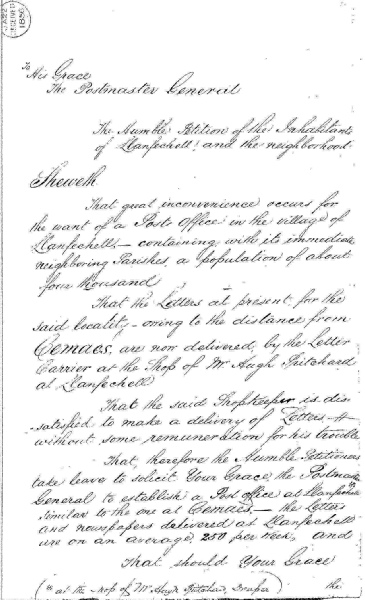 RECEIVED
1856
To
His Grace
The Postmaster General
The Humble Petition of the Inhabitants
of Llanfechell and the neighborhood
Sheweth
That great inconvenience occurs for
the want of a Post Office in the village of
Llanfechell, – containing with its immediate
neighboring Parishes a population of about
four thousand
That the Letters at present for the
said locality – owing to the distance from
Cemaes, are now delivered, by the Letter
Carrier at the Shop of Mr Hugh Pritchard
at Llanfechell
That the said Shopkeeper is dis
-satisfied to make a delivery of Letters
without some remuneration for his trouble
That, therefore the Humble Petitioners
take leave to solicit Your Grace, the Postmaster
General to establish a Post office at Llanfechell
similar to the one at Cemaes, – the Letters
and newspapers delivered at Llanfechell
are on an average, 250 per week, and
That should Your Grace
(* at the shop of Mr Hugh Pritchard, Draper) the